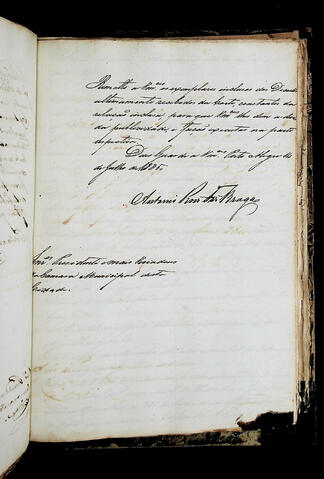 Remetto a Vm.ces os exemplares inclusos das Decre
ultimamente recebidos da Corte, constantes da
relação inclusa para que Vm.ces lhe dem a devi
da publicidade, e façam executar na parte
respectiva.
Deos Guarde a Vm.ces Porto Alegre
de Julho de 1836.
Antonio Braga
Snr.es Presidente e mais Vereadores
da Camara Municipal desta
Cidade.